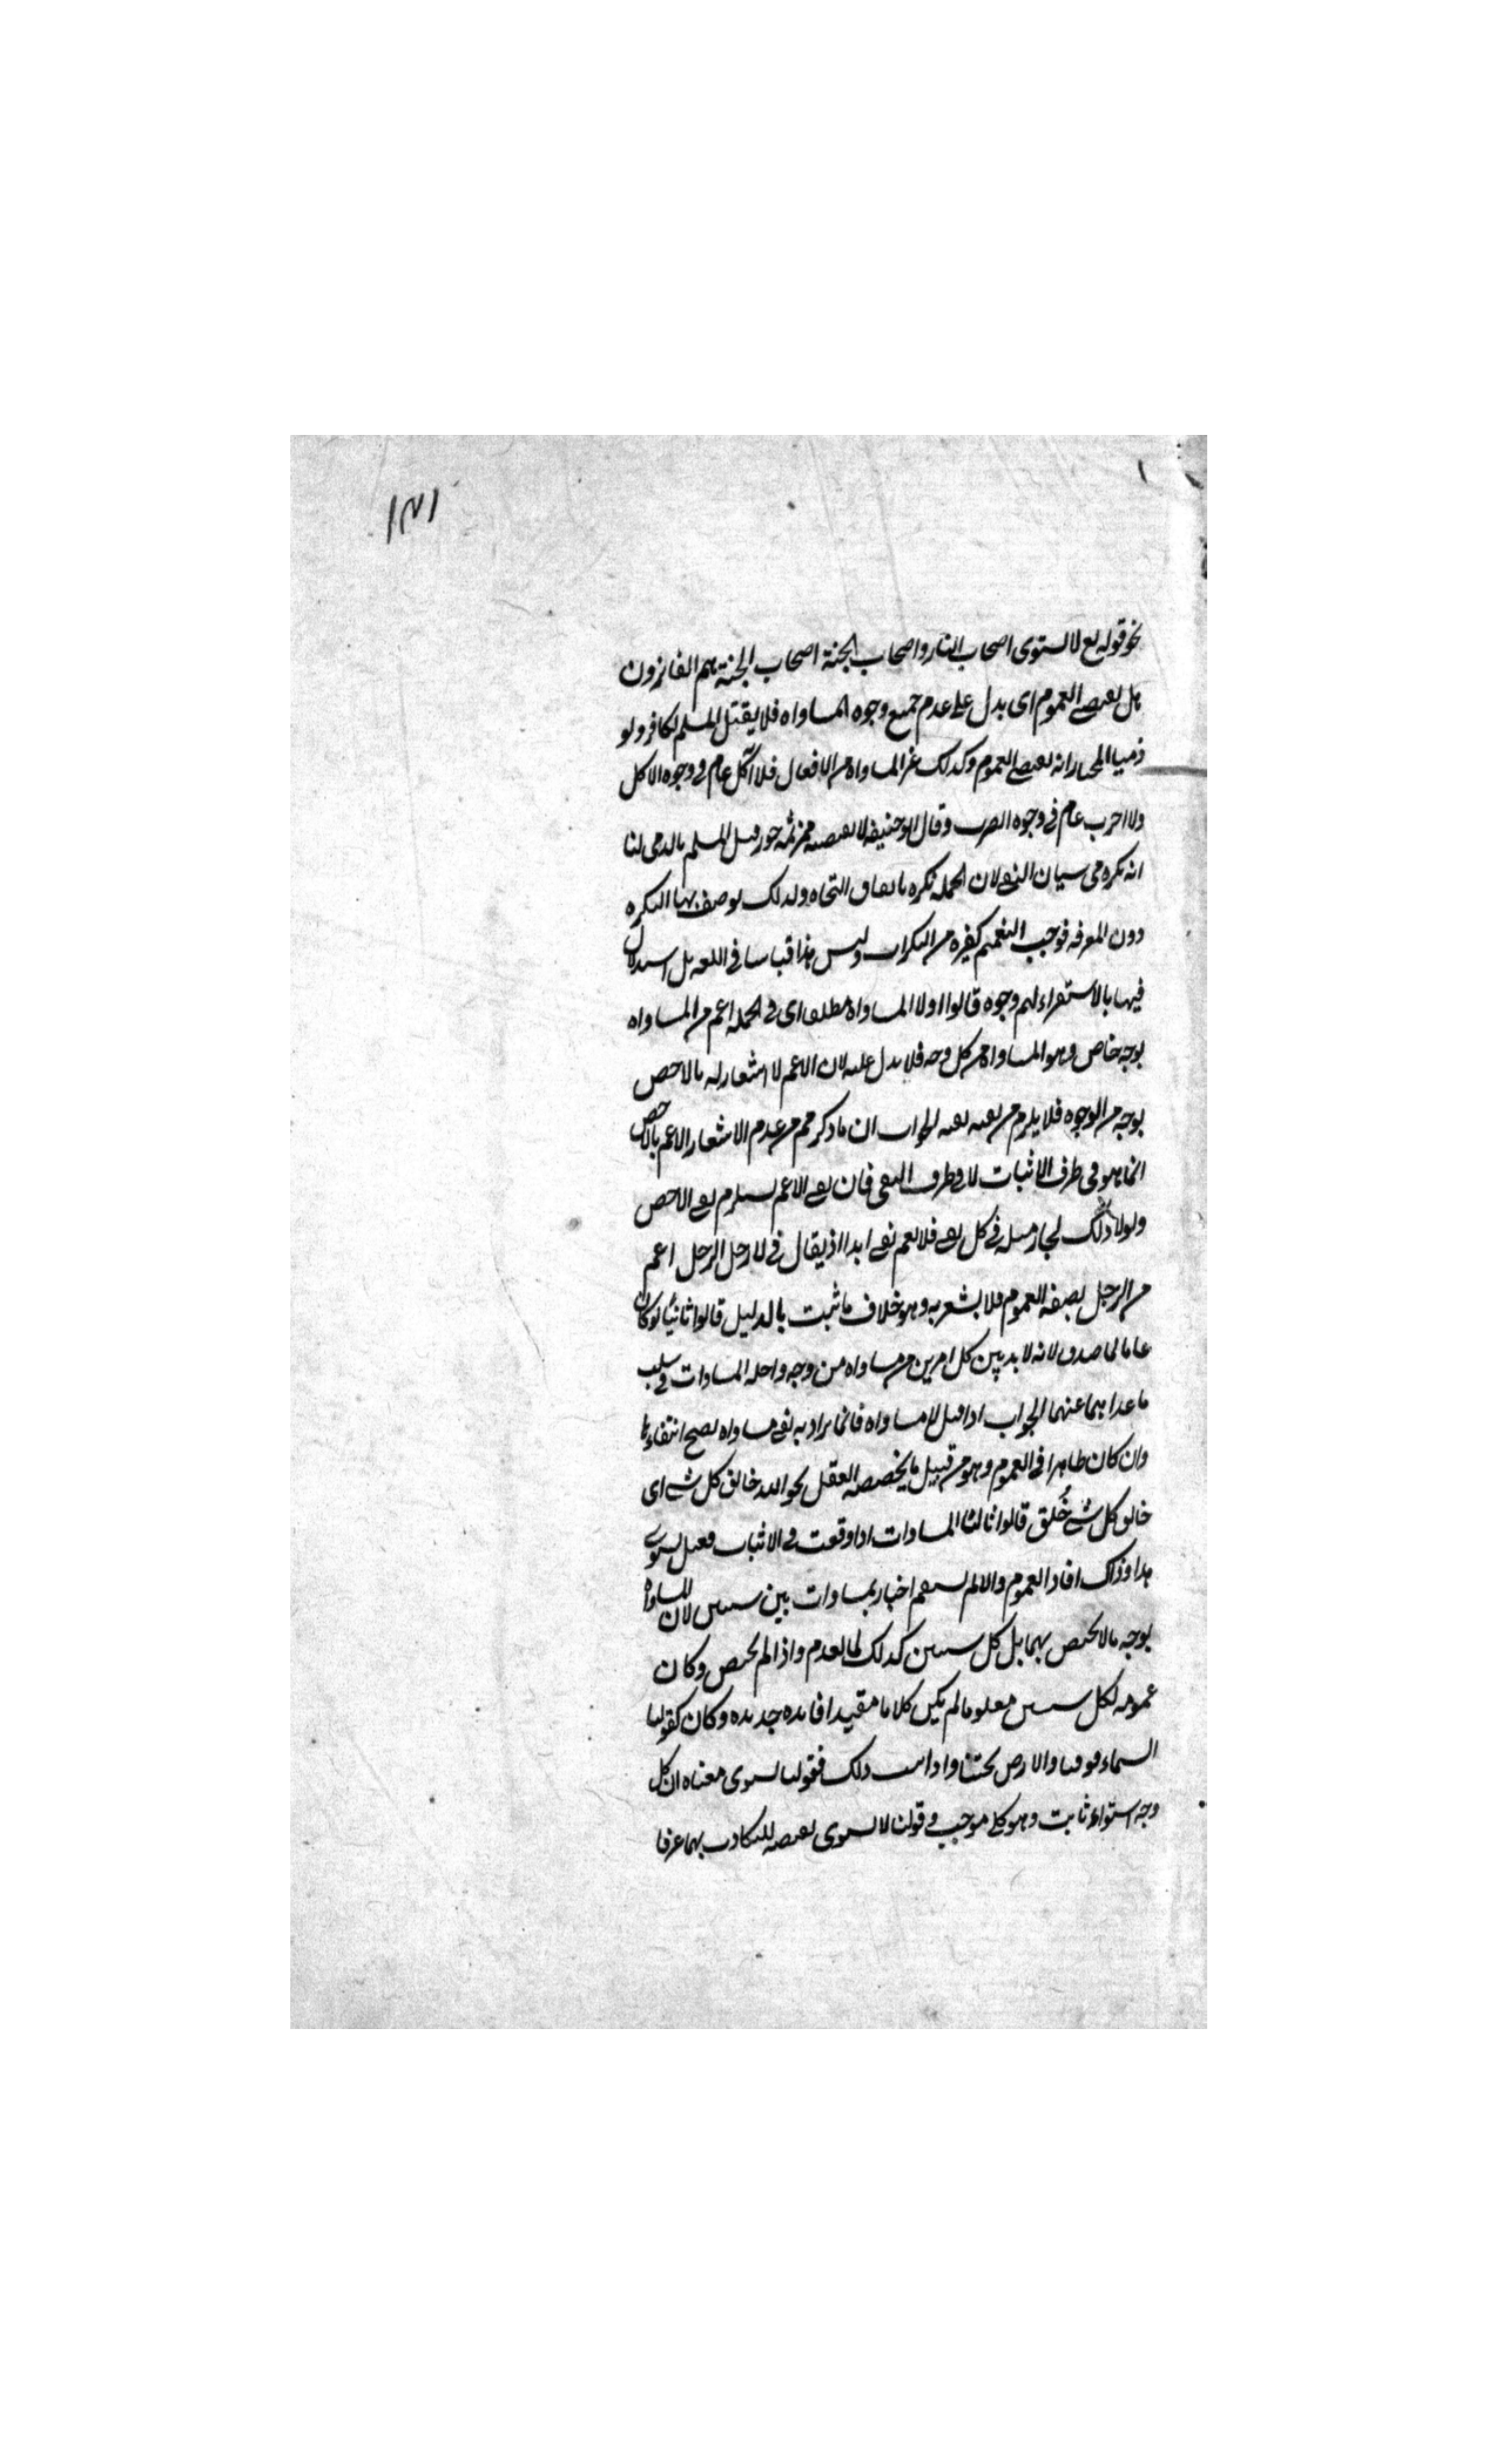 ١٧١
نحو قوله تع لا يستوى اصحاب النار واصحاب الجنة اصحاب الجنة هم الفائزون
هل يقتضى العموم اى يدل على عدم جميع وجوه المساواه فلا يقتل المسلم بكافر ولو
ذميا المختار انه يقتضى العموم وكذلك غير المساواه من الافعال فلا آكل عام فى وجوه الاكل
ولا اضرب عام فى وجوه الضرب وقال ابو حنيفه لا يقتضيه فمن ثمه جوز قتل المسلم بالذمى لنا
انه نكره فى سياق النفى لان الجمله نكره باتفاق النحاه ولذلك يوصف بها النكره
دون المعرفه فوجب التعميم كغيره من النكرات وليس هذا قياسا فى اللغه بل استدلال
فيها بالاستقراء لهم وجوه قالوا اولا المساواه مطلقا اى فى الجمله اعم من المساواه
بوجه خاص وهو المساواه من كل وجه فلا يدل عليه لان الاعم لا اشعار له بالاخص
بوجه من الوجوه فلا يلزم من نفيه نفيه الجواب ان ما ذكرتم من عدم الاشعار الاعم بالاخص
انما هو فى طرف الاثبات لا فى طرف النفى فان نفى الاعم يستلزم نفى الاخص
ولولا ذلك لجاز مثله فى كل نفى فلا يعم نفى ابدا اذ يقال فى لا رجل الرجل اعم
من الرجل بصفه العموم فلا يشعر به وهو خلاف ما ثبت بالدليل قالوا ثانيا لو كان
عاما لما صدق لانه لا بد بين كل امرين من مساواه من وجه واحله المساوات فى سلب
ما عداهما عنهما الجواب اذا قيل لا مساواه فانما يراد به نفى مساواه يصح انتفاءها
وان كان ظاهرا فى العموم وهو من قبيل ما يخصصه العقل نحو الله خالق كل شى اى
خالق كل شى خُلق قالوا ثالثا المساوات اذا وقعت فى الاثبات فقيل يستوى
هذا وذاك افاد العموم والا لم يستقم اخبار بمساوات بين شيئين لان المساواه
بوجه ما لا يختص بهما بل كل شيئين كذلك لما تقدم واذا لم يختص وكان
عمومه لكل شيئين معلوما لم يكن كلاما مفيدا فائده جديده وكان كقولنا
السماء فوقنا والارض تحتنا واذا ثبت ذلك فقولنا يستوى معناه ان كل
وجه استواء ثابت وهو كلى موجب وقولنا لا يستوى نقيضه للتكاذب بهما عرفا